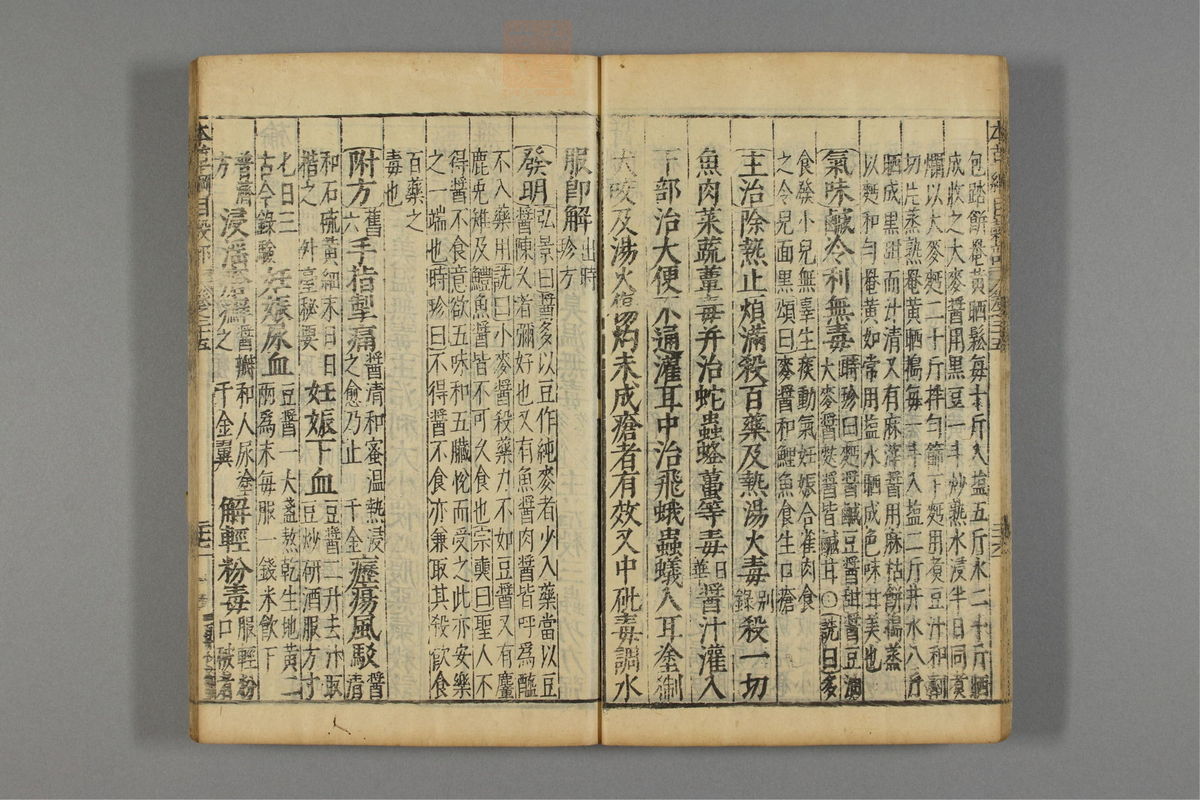 本草綱目穀部 卷之二十五 二十六
包踏餅罨黃晒鬆每十斤入塩五斤水二十斤晒
成收之大麥醬用黑豆一斗炒熟水浸半日同煮
爛以大麥麪二十斤拌勻篩下麪用煮豆汁和劑
切片蒸熟罨黃晒搗每一斗入塩二斤井水八斤
晒成黑甜而汁清又有麻滓醬用麻枯餅搗蒸
以麪和勻罨黃如常用塩水晒成色味甘美也
氣味鹹冷利無毒時珍曰麪醬鹹豆醬甜醬豆油大麥醬麩醬皆鹹甘○詵曰多
食發小兒無辜生痰動氣妊娠合雀肉食
之令兒面黑頌曰麥醬和鯉魚食生口瘡
主治除熱止煩滿殺百藥及熱湯火毒別錄殺一切
魚肉菜蔬蕈毒并治蛇蟲蜂蠆等毒日華醬汁灌入
下部治大便不通灌耳中治飛蛾蟲蟻入耳塗猘
犬咬及湯火傷灼未成瘡者有效又中砒毒調水
服即解出時珍方
發明弘景曰醬多以豆作純麥者少入藥當以豆
醬陳久者彌好也又有魚醬肉醬皆呼爲醢
不入藥用詵曰小麥醬殺藥力不如豆醬又有麞
鹿兔雉及鱧魚醬皆不可久食也宗奭曰聖人不
得醬不食意欲五味和五臟悅而受之此亦安樂
之一端也時珍曰不得醬不食亦兼取其殺飲食
百藥之
毒也
附方舊六手指掣痛醬清和蜜温熱浸之愈乃止千金癧瘍風駁醬清
和石硫黃細末日日揩之外臺秘要妊娠下血豆醬二升去汁取豆炒研酒服方寸
匕日三古今錄驗妊娠尿血豆醬一大盞熬乾生地黃二兩爲末每服一錢米飲下
普濟方浸淫瘡癬醬瓣和人尿塗之千金翼解輕粉毒服輕粉口破者
本草綱目穀部 卷之二十五 二十七